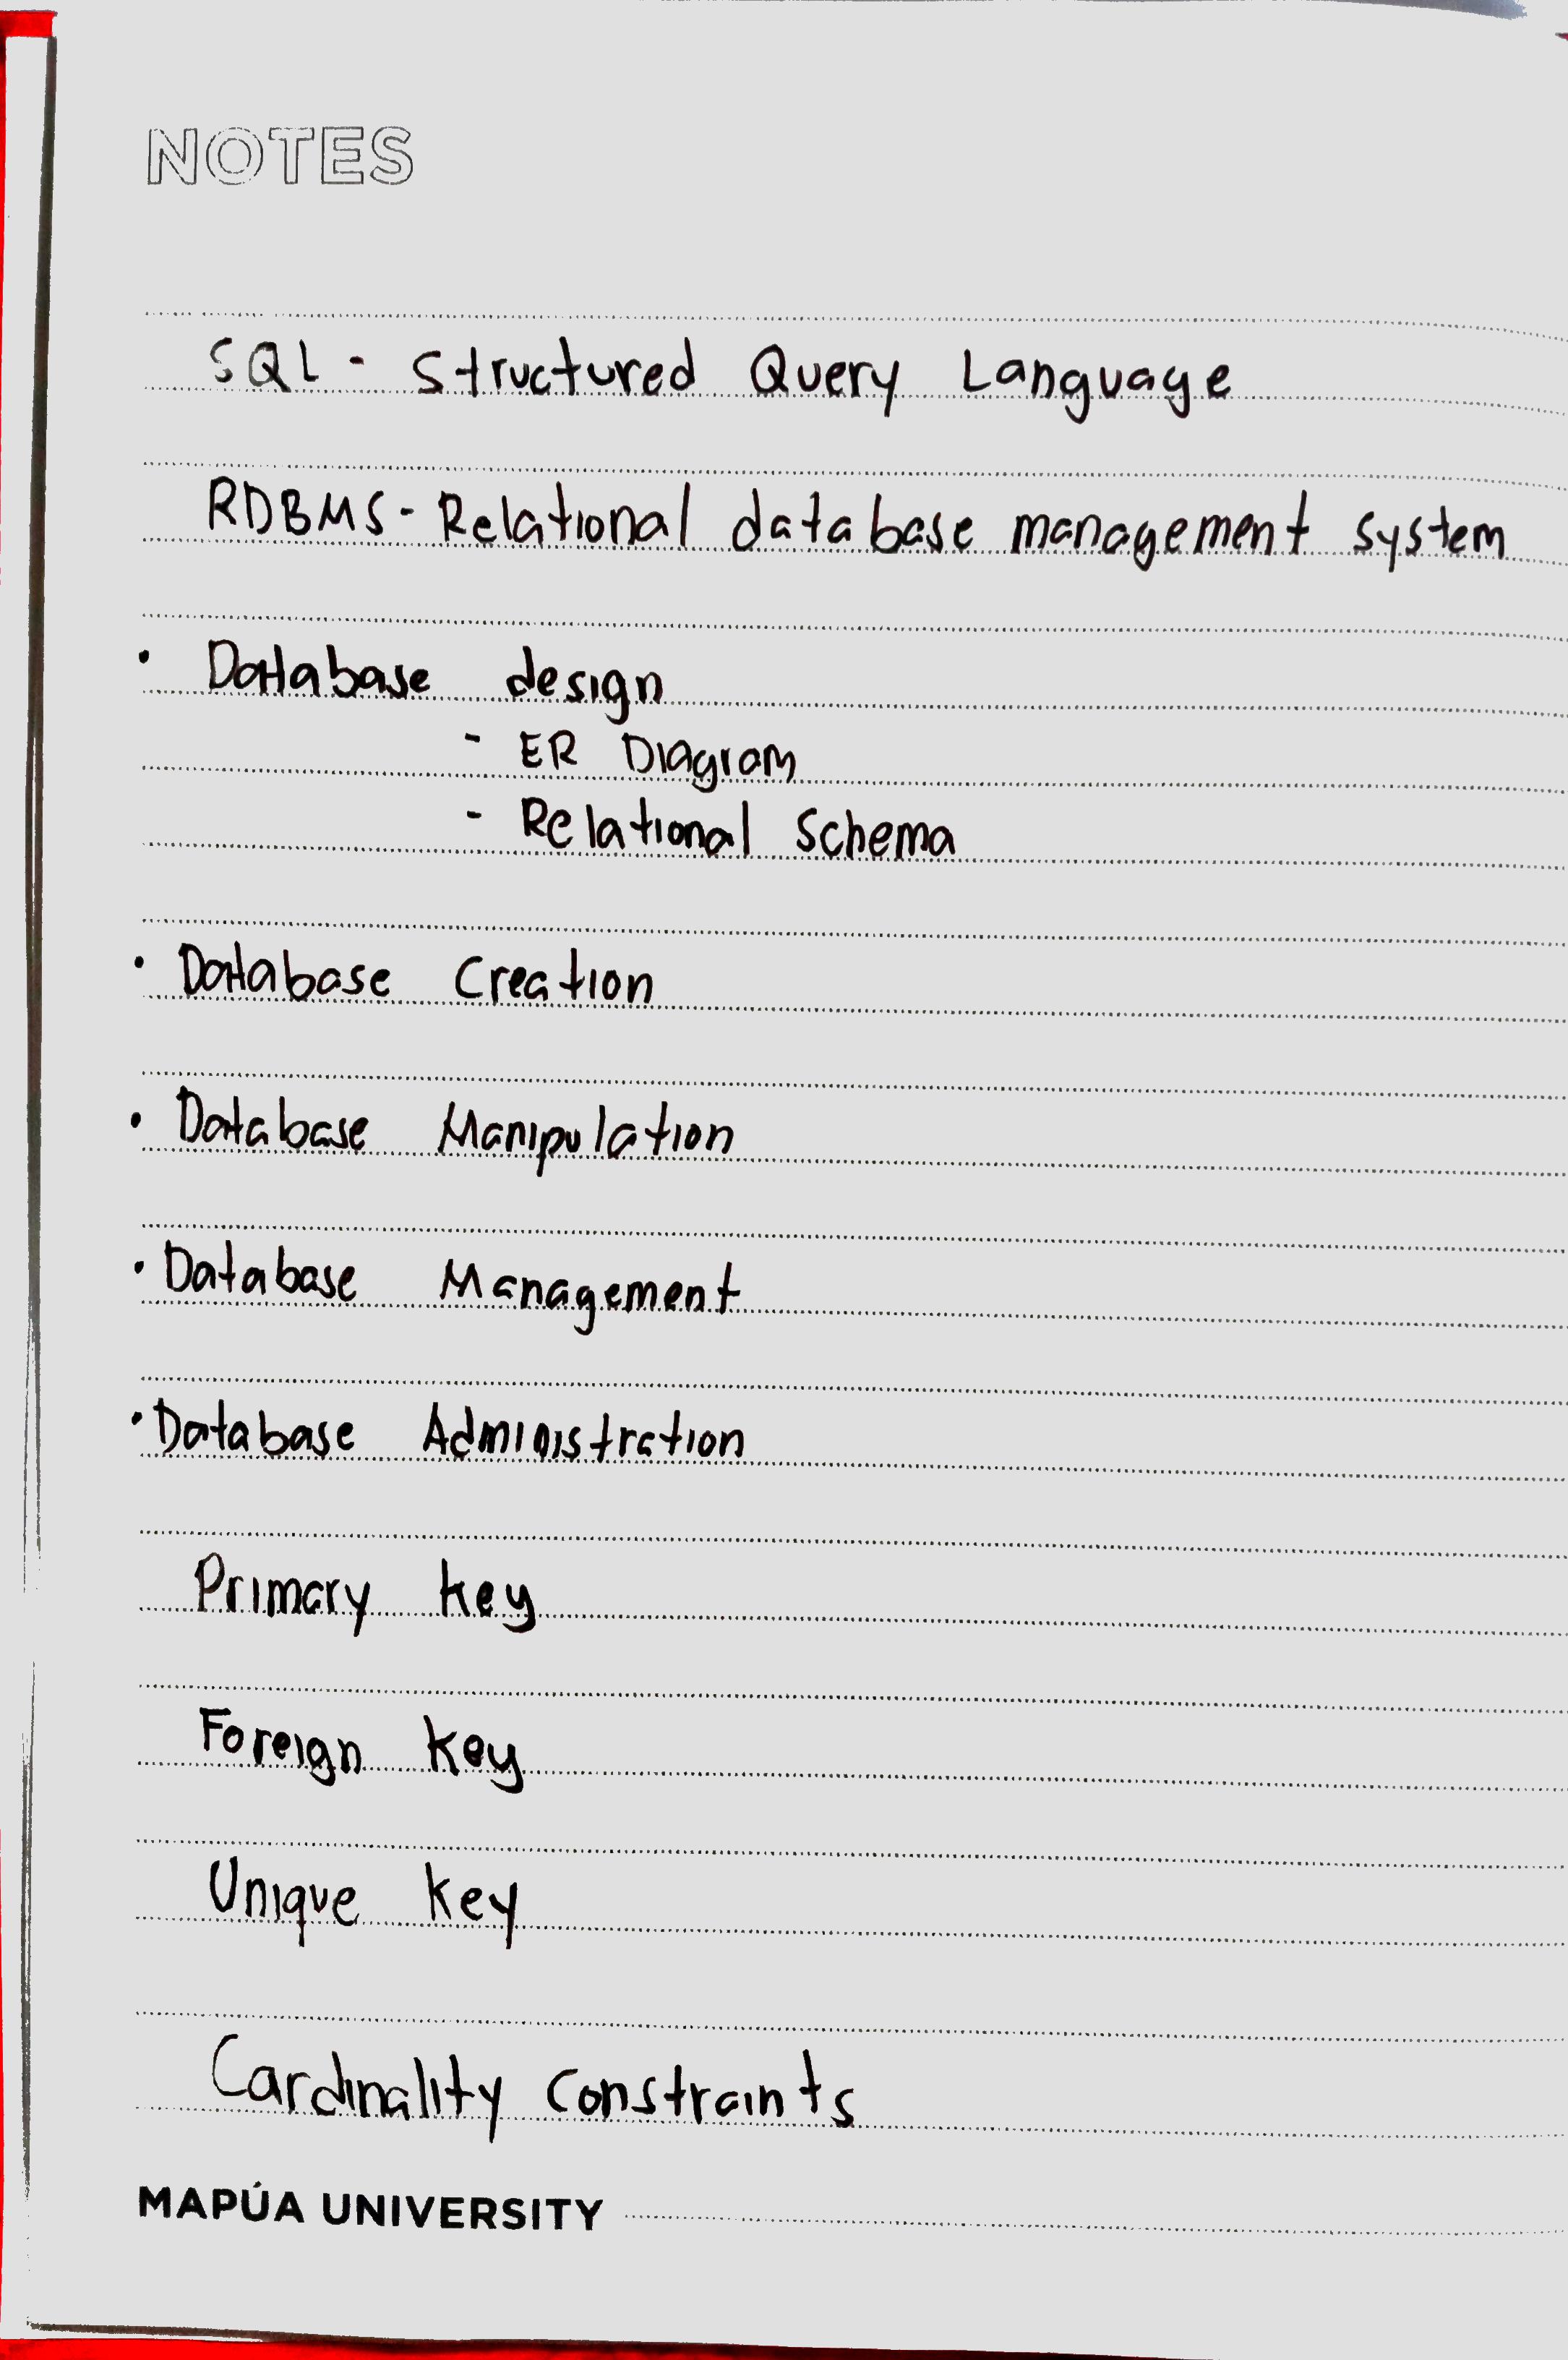 NOTES
SQL - Structured Query Language
RDBMS - Relational database management system
• Database design
- ER Diagram
- Relational Schema
• Database Creation
• Database Manipulation
• Database Management
• Database Administration
Primary key
Foreign key
Unique key
Cardinality Constraints
MAPÚA UNIVERSITY